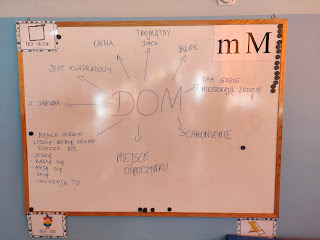 TRÓJKĄTNY
DACH
OKNA
BLOK
m M
JEST KWADRATOWY
TAM GDZIE
MIESZKAJĄ LUDZIE
DOM
Z DREWNA
SCHRONIENIE
MIEJSCE GDZIE
LUDZIE ROBIĄ RÓŻNE
RZECZY NP.
- JEDZĄ
- BAWIĄ SIĘ
- MYJĄ SIĘ
- ŚPIĄ
- OGLĄDAJĄ TV
MIEJSCE
ODPOCZYNKU